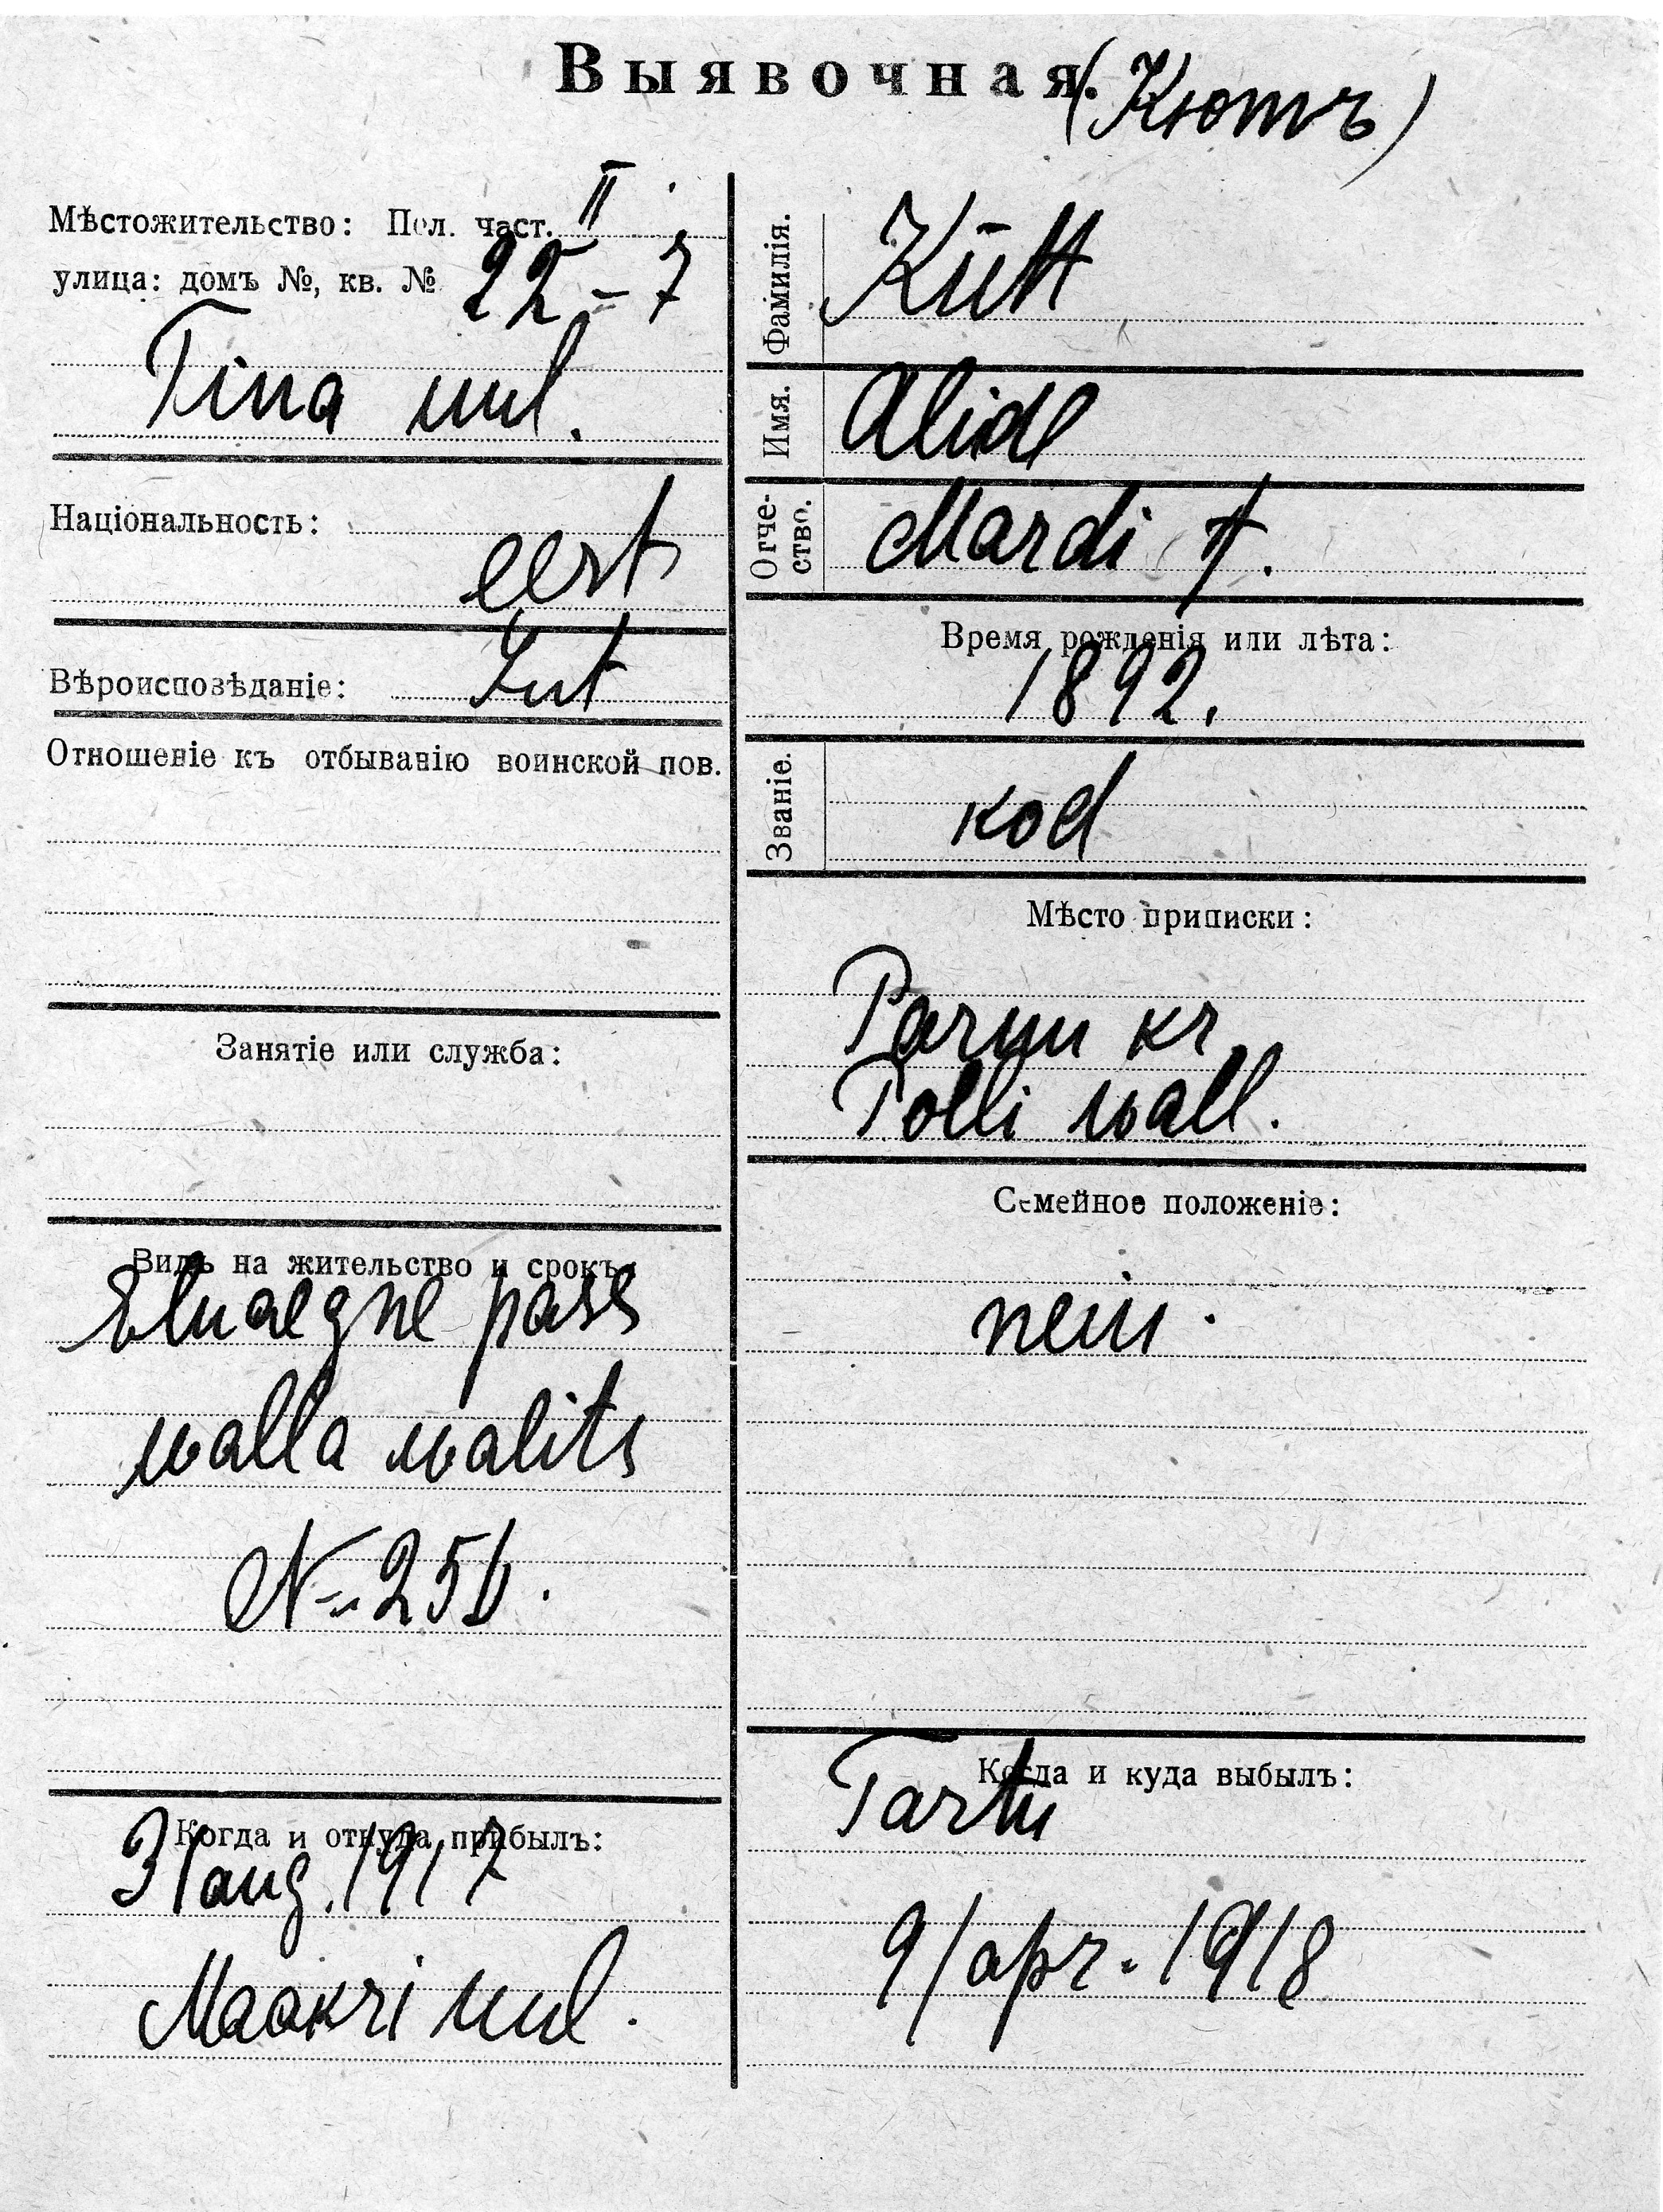 Выявочная.
(Кютъ)
Мѣстожительство: Пол. част. II
улица: домъ №, кв. № 22-7
Tina uul.
Національность:
eest
Вѣроисповѣданіе: Lut
Отношеніе къ отбыванію воинской пов.
Занятіе или служба:
Видъ на жительство и срокъ:
Eluaegne pass
walla walits
№ 256.
Когда и откуда прибылъ:
31 aug. 1917
Maakri uul.
Фамилія. Kütt
Имя. Alide
Отче-
ство. Mardi t.
Время рожденія или лѣта:
1892.
Званіе. kod
Мѣсто приписки:
Parnu kr
Polli wall.
Семейное положеніе:
neiu.
Когда и куда выбылъ:
Tartu
9/apr. 1918